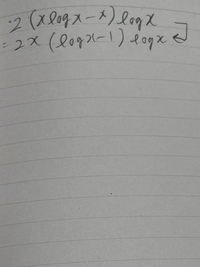 ·2 (xlogx-x) logx
= 2x (logx-1) logx